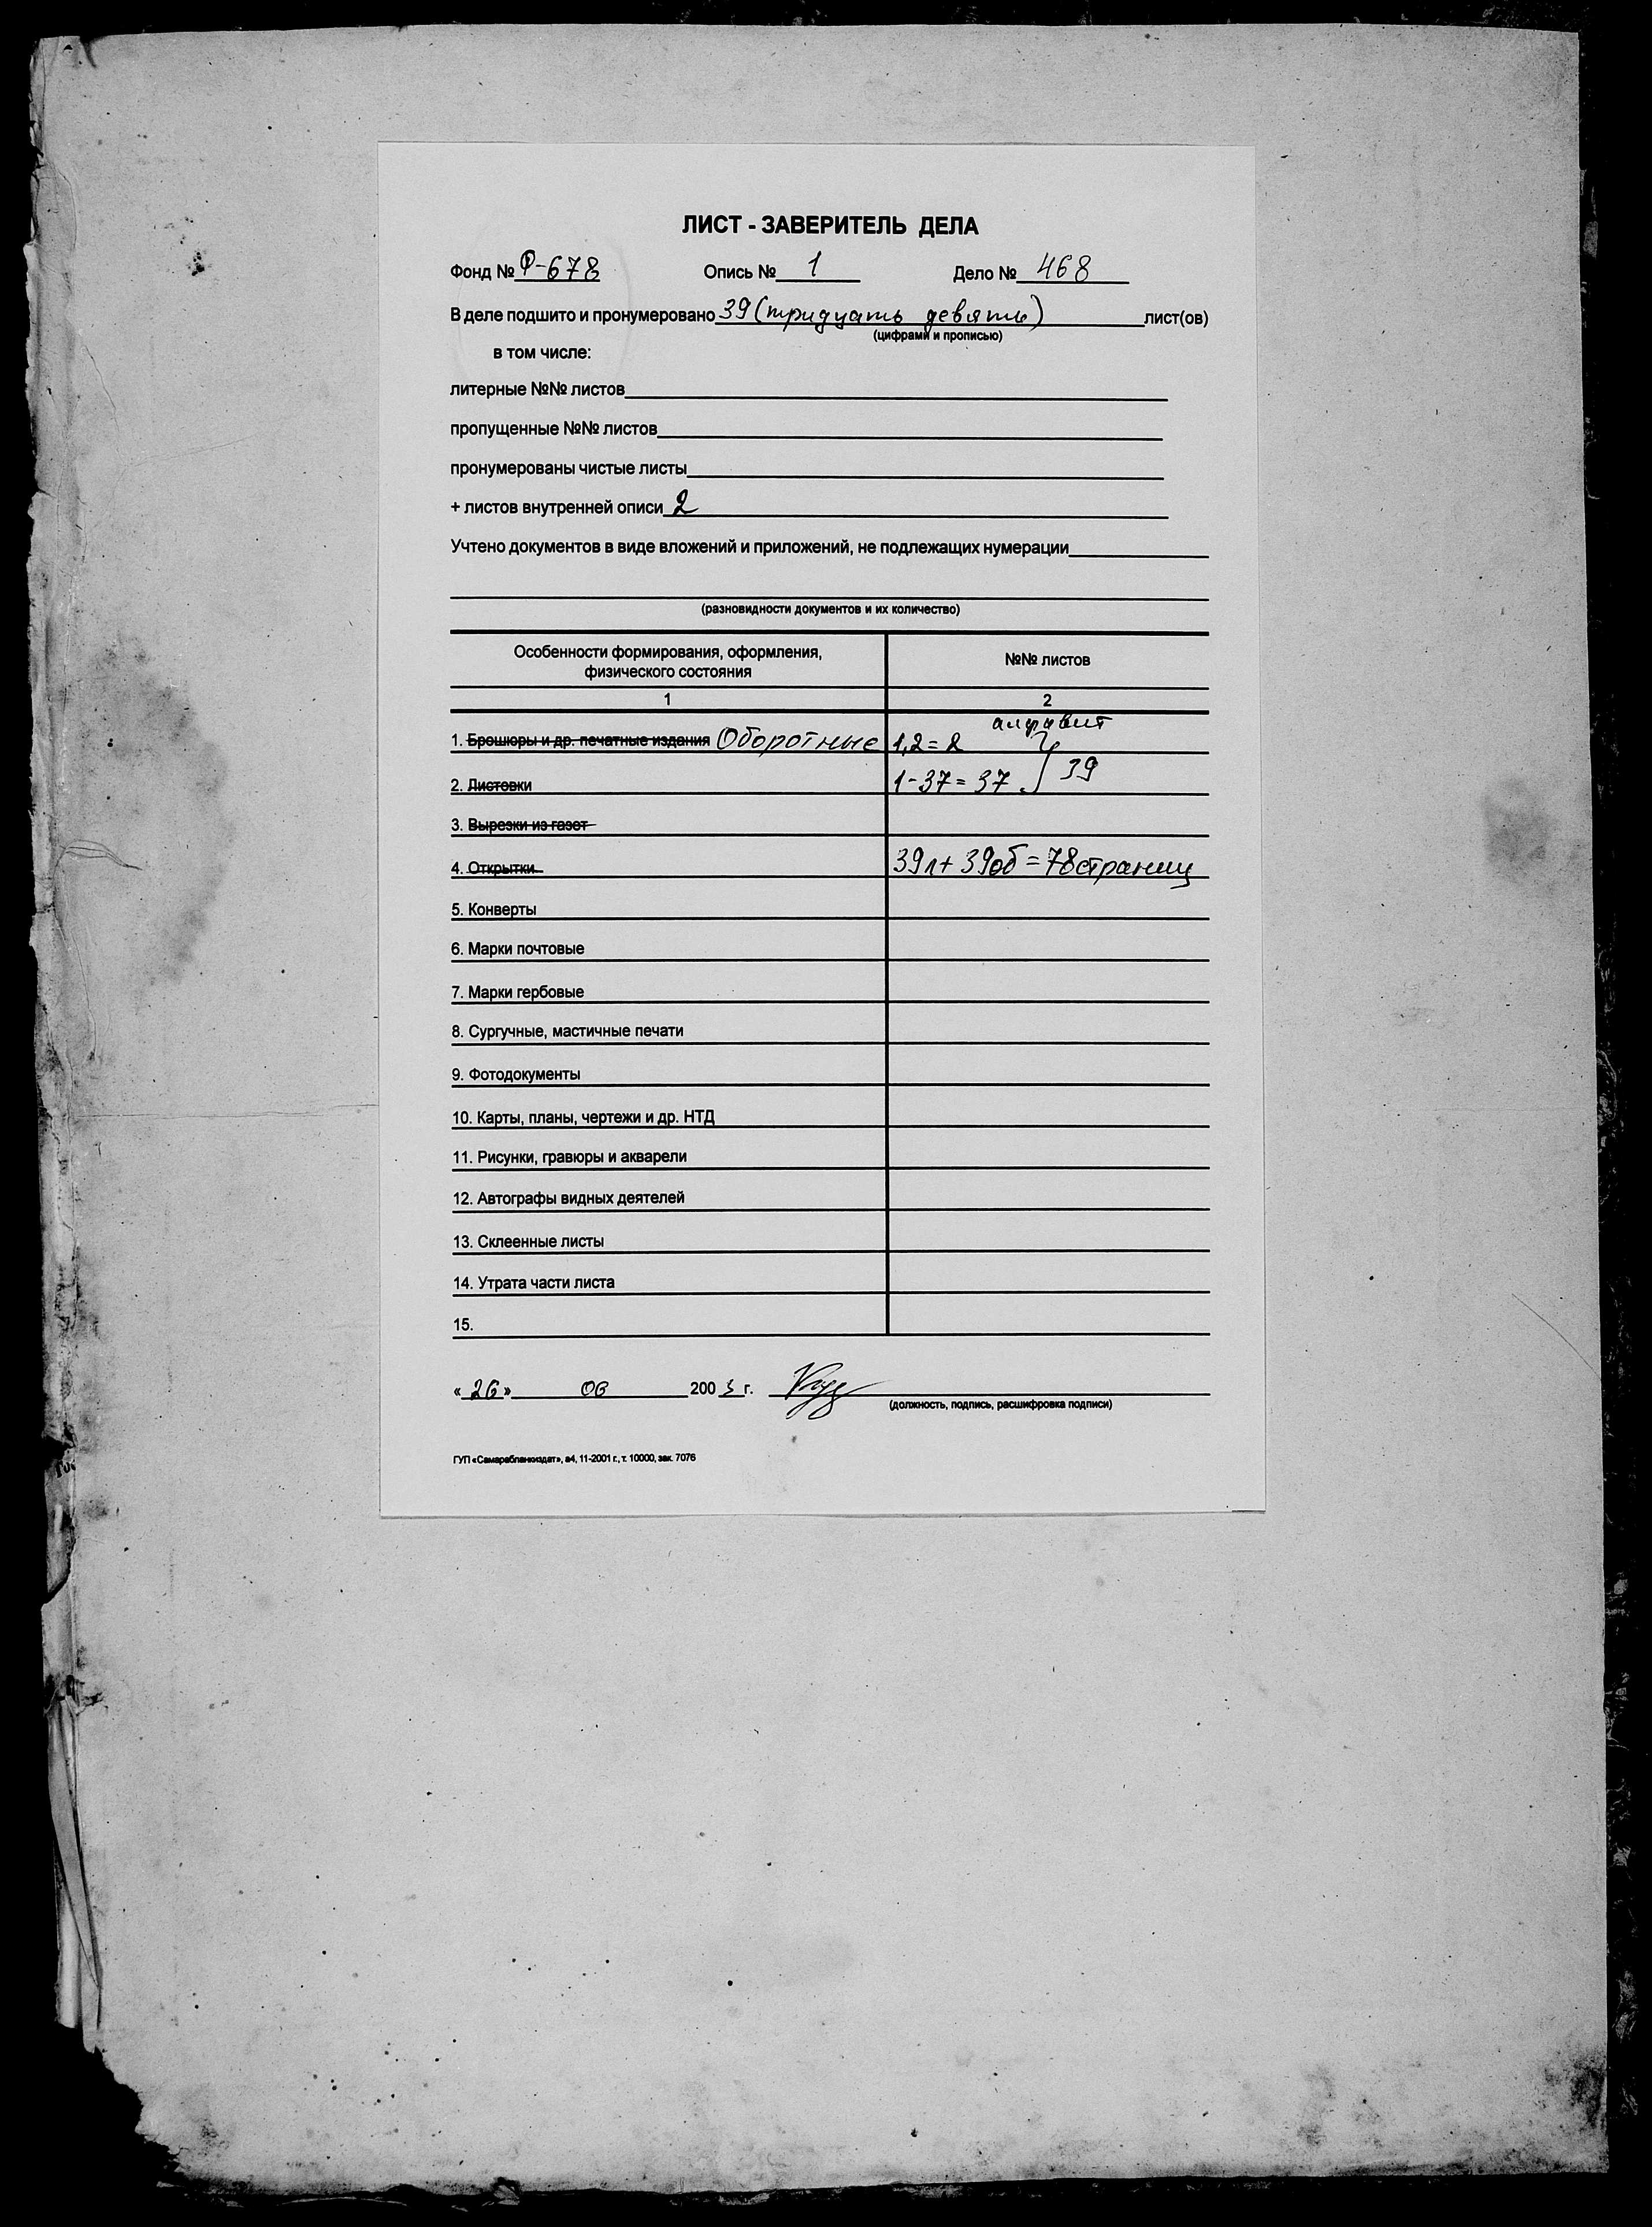 ЛИСТ - ЗАВЕРИТЕЛЬ ДЕЛА
Фонд № Ф-678 Опись № 1 Дело № 468
В деле подшито и пронумеровано 39 (тридцать девять) лист(ов)
(цифрами и прописью)
в том числе:
литерные №№ листов
пропущенные №№ листов
пронумерованы чистые листы
+ листов внутренней описи 2
Учтено документов в виде вложений и приложений, не подлежащих нумерации
(разновидности документов и их количество)
Особенности формирования, оформления, физического состояния
№№ листов
1 2
алфавит
1. Брошюры и др. печатные издания Оборотные 1,2=2
2. Листовки 1-37=37 39
3. Вырезки из газет
4. Открытки 39л+39об=78страниц
5. Конверты
6. Марки почтовые
7. Марки гербовые
8. Сургучные, мастичные печати
9. Фотодокументы
10. Карты, планы, чертежи и др. НТД
11. Рисунки, гравюры и акварели
12. Автографы видных деятелей
13. Склеенные листы
14. Утрата части листа
15.
«26» 06 2003 г.
(должность, подпись, расшифровка подписи)
ГУП «Самарабланкиздат», а4, 11-2001 г., т. 10000, зак. 7076